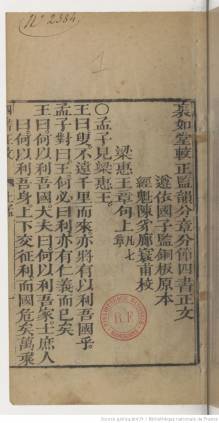 N° 2384.
1
裒如堂較正監韻分章分節四書正文
遵依國子監銅板原本
經魁陳芳廊寰甫校
梁惠王章句上 凡七章
〇孟子見梁惠王。
王曰叟。不遠千里而來亦將有以利吾國乎。
孟子對曰王何必曰利亦有仁義而已矣
王曰何以利吾國大夫曰何以利吾家士庶人
曰何以利吾身上下交征利而國危矣萬乘
四書正文
R.F.